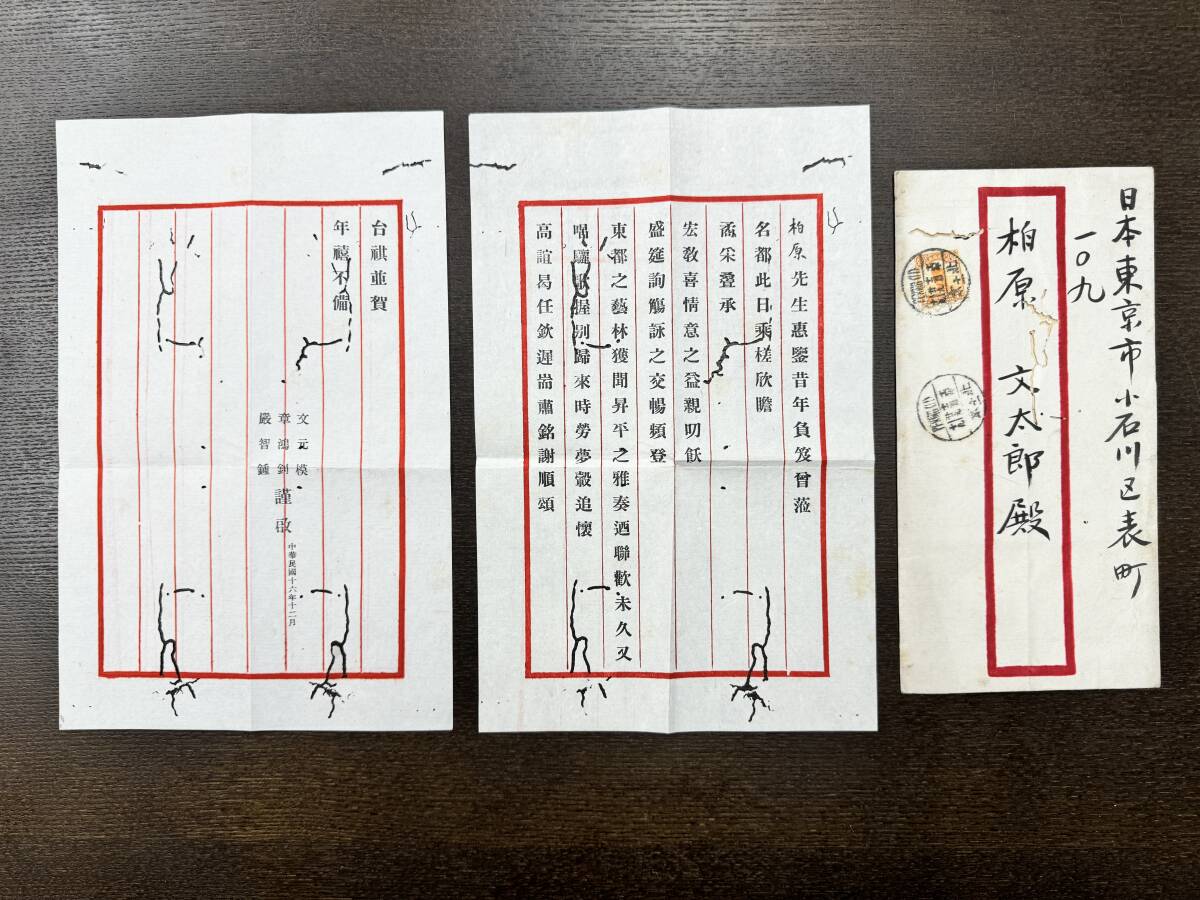 日本東京市小石川区表町
一〇九
柏原文太郎殿
柏原先生惠鑒昔年負笈曾蒞
名都此日乘槎欣瞻
喬采疊承
宏教喜情意之益親叨飫
盛筵詢觴詠之交暢頻登
東都之藝林獲聞昇平之雅奏迺聯歡未久又
唱驪歌握別歸來時勞夢轂追懷
高誼曷任欽遲耑肅銘謝順頌
台祺並賀
年禧不備
文元模
章鴻釗
嚴智鍾
謹啟
中華民國十六年十二月